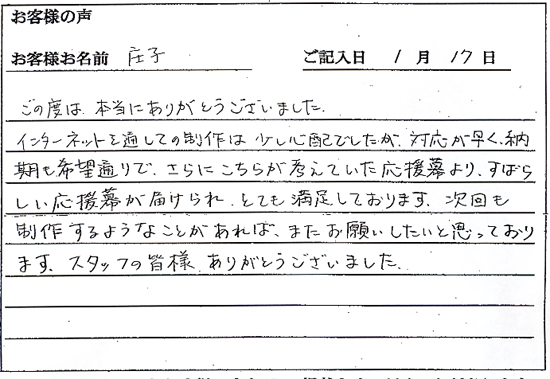 お客様の声
お客様お名前 庄子 ご記入日 1月17日
この度は、本当にありがとうございました。
インターネットを通しての制作は少し心配でしたが、対応が早く、納
期も希望通りで、さらにこちらが考えていた応援幕より、すばら
しい応援幕が届けられ、とても満足しております。次回も
制作するようなことがあれば、またお願いしたいと思っており
ます。スタッフの皆様、ありがとうございました。